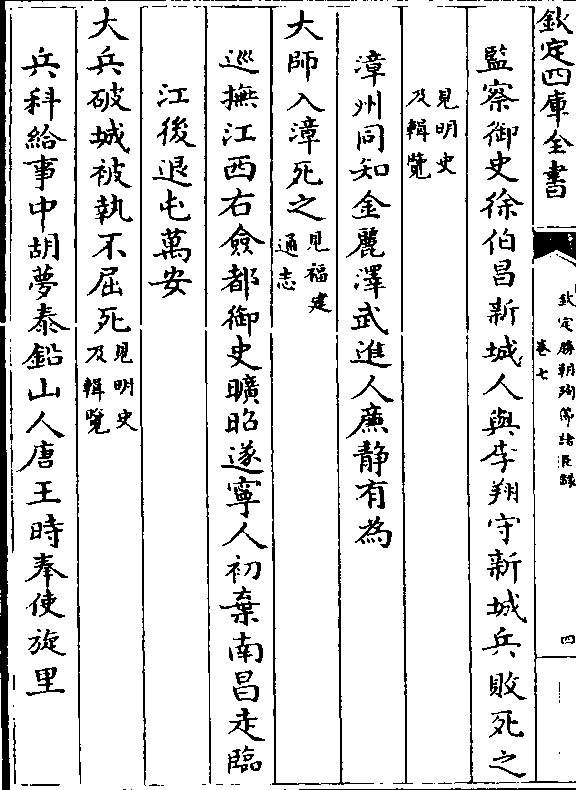 欽定四庫全書
欽定勝朝殉節諸臣錄
卷七
四
監察御史徐伯昌新城人與李翔守新城兵敗死之
見明史
及輯覽
漳州同知金麗澤武進人廉静有為
大師入漳死之見福建
通志
巡撫江西右僉都御史曠昭遂寧人初棄南昌走臨
江後退屯萬安
大兵破城被執不屈死見明史
及輯覽
兵科給事中胡夢泰鉛山人唐王時奉使旋里